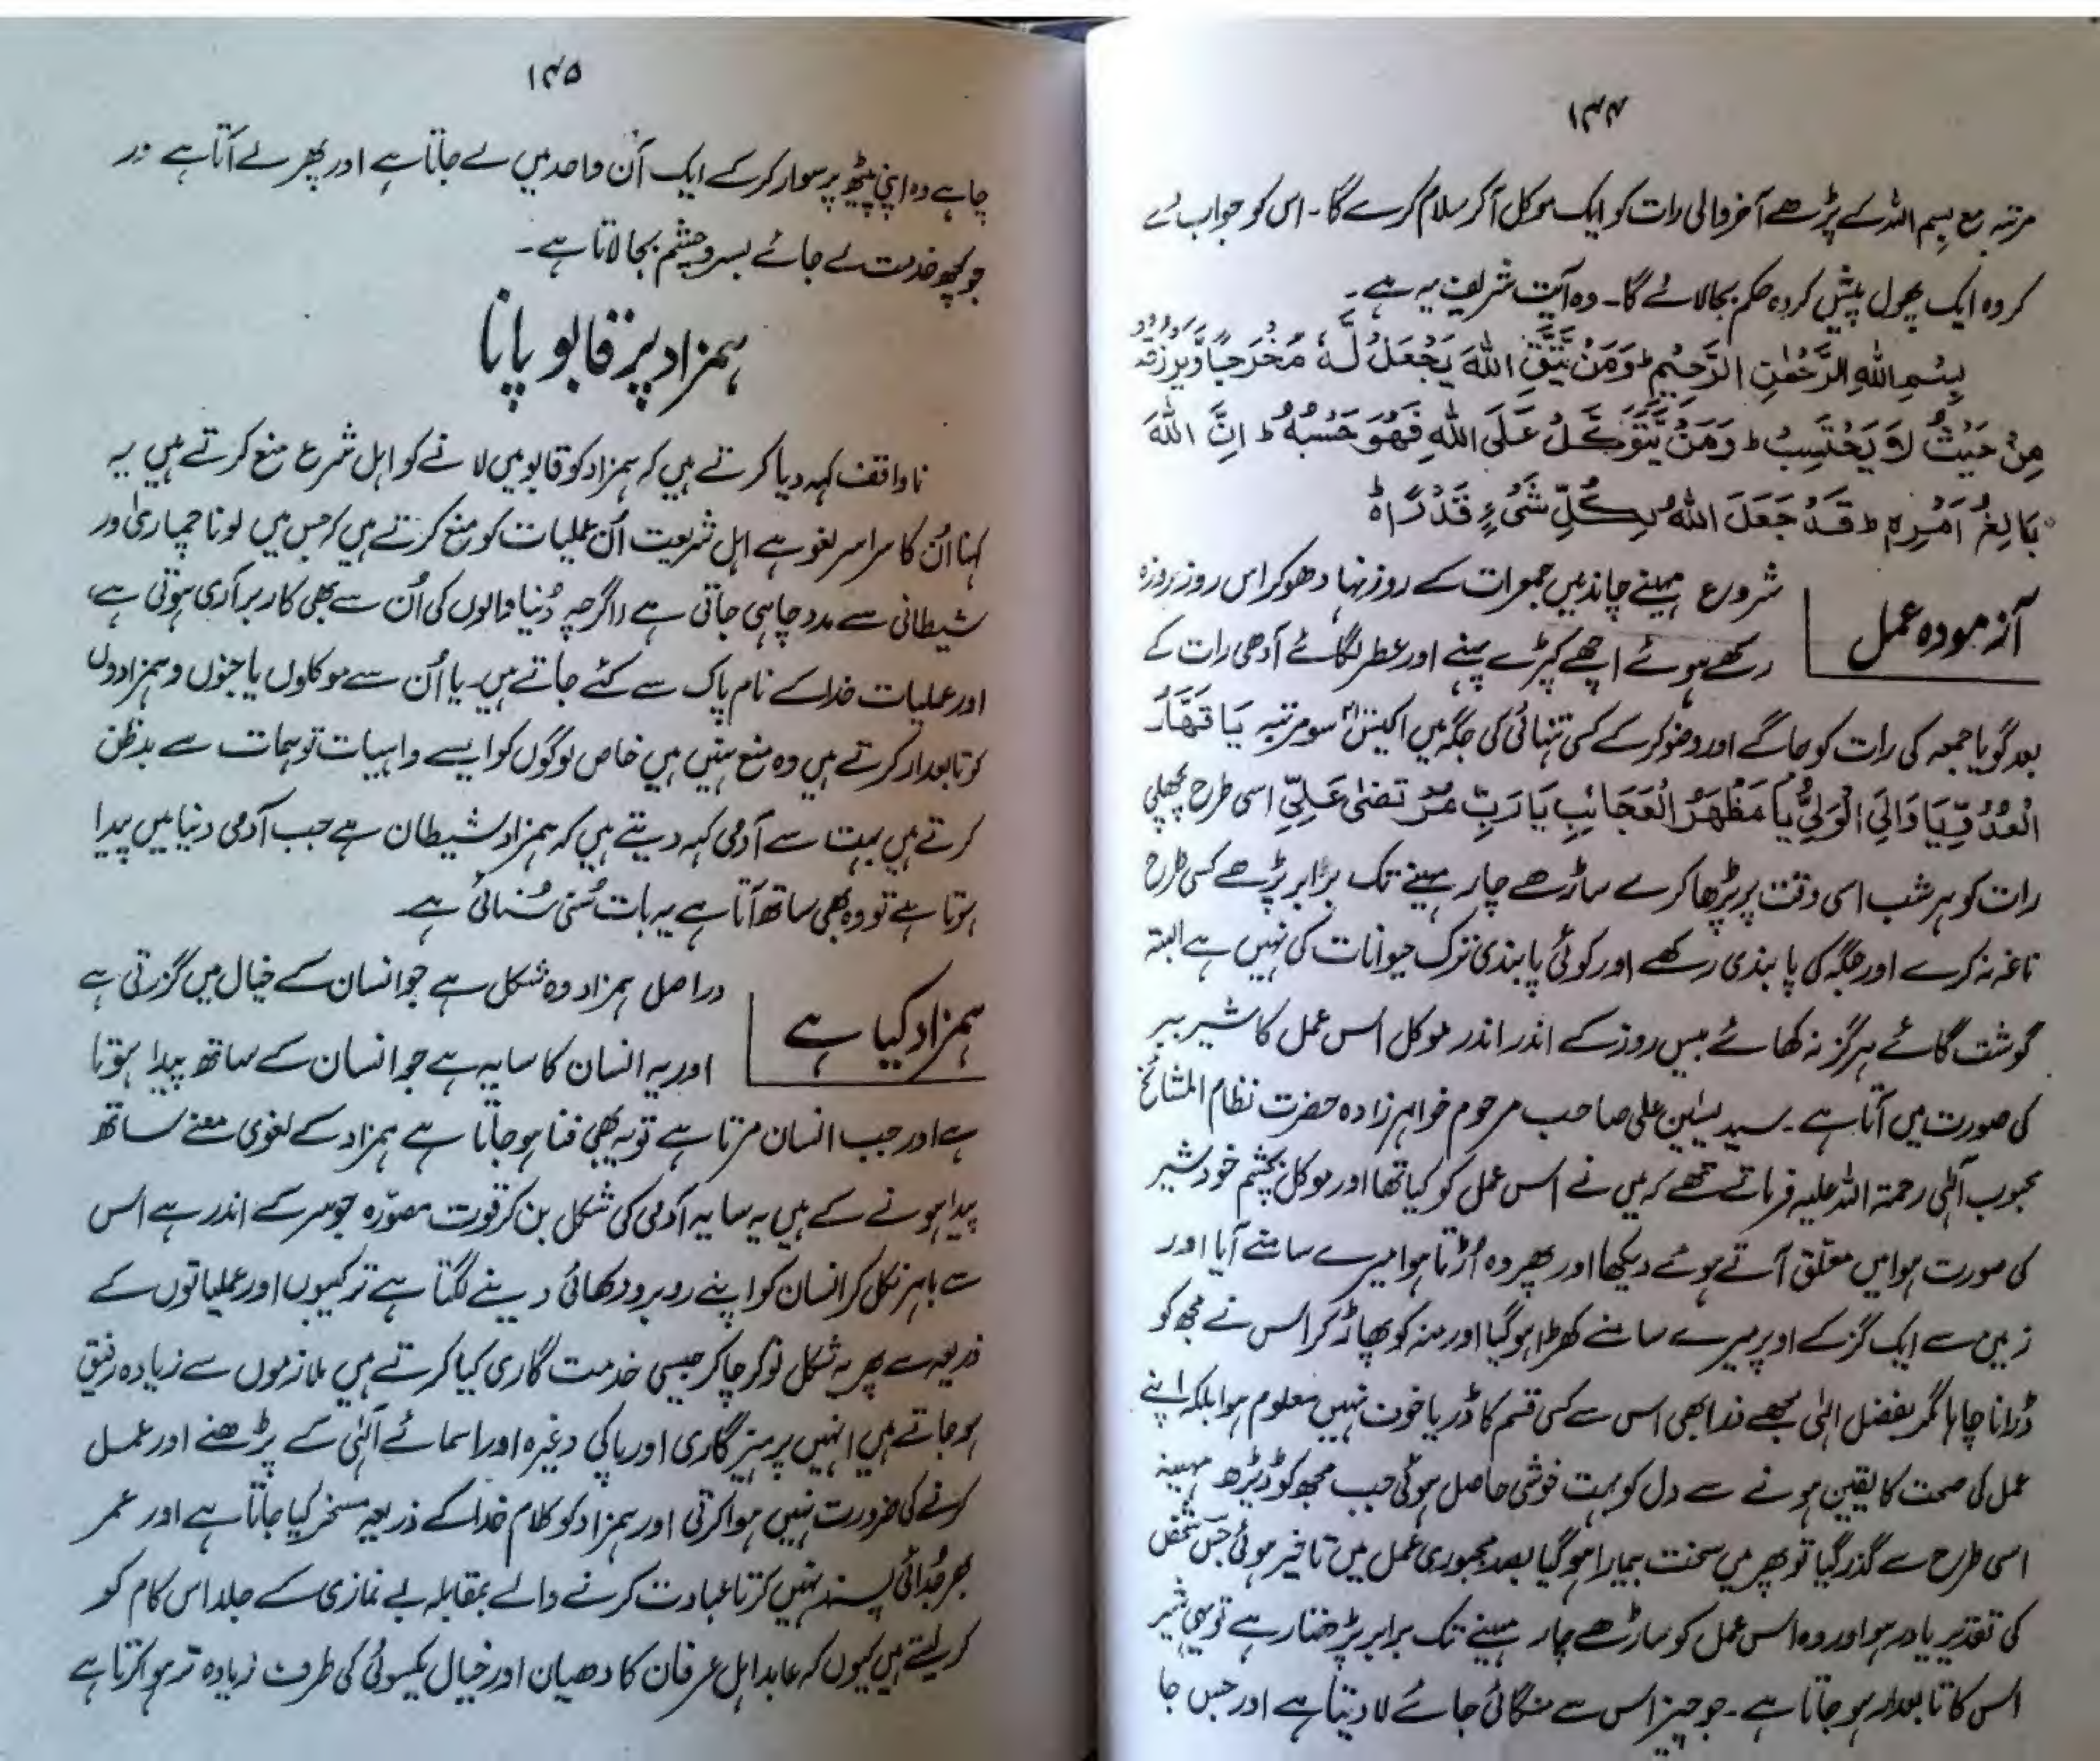 ۱۴۴
مرتبہ مع بسم اللہ کے پڑھے آخر والی رات کو ایک موکل آکر سلام کرے گا۔ اس کو جواب دے
کر وہ ایک پھول پیش کر وہ حکم بجا لائے گا۔ وہ آیت شریف یہ ہے۔
بِسْمِ اللهِ الرَّحْمٰنِ الرَّحِيْمِ ط وَمَنْ يَّتَّقِ اللهَ يَجْعَلْ لَّهٗ مَخْرَجًا وَّيَرْزُقْهُ
مِنْ حَيْثُ لَا يَحْتَسِبُ ط وَمَنْ يَّتَوَكَّلْ عَلَى اللهِ فَهُوَ حَسْبُهٗ ط اِنَّ اللهَ
بَالِغُ اَمْرِهٖ ط قَدْ جَعَلَ اللهُ لِكُلِّ شَىْءٍ قَدْرًا ہ
آزمودہ عمل
شروع مہینے چاند میں جمعرات کے روز نہا دھو کر اس روز روزہ
رکھے ہوئے اچھے کپڑے پہنے اور عطر لگائے آدھی رات کے
بعد گویا جمعہ کی رات کو جاگے اور وضو کر کے کسی تنہائی کی جگہ میں اکیس سو مرتبہ یَا قَهَّارُ
الْعَدُوِّ یَا وَالِیَ الْوَلِیِّ یَا مَظْهَرَ الْعَجَائِبِ یَا رَبِّ مُرْتَضٰی عَلِیِّ اسی طرح پچھلی
رات کو ہر شب اسی وقت پر پڑھا کرے ساڑھے چار مہینے تک برابر پڑھے کسی طرح
ناغہ نہ کرے اور جگہ کی پابندی رکھے اور کوئی پابندی ترک حیوانات کی نہیں ہے البتہ
گوشت گائے ہرگز نہ کھائے بیس روز کے اندر اندر موکل اس عمل کا شیر ببر
کی صورت میں آتا ہے۔ سید یٰسین علی صاحب مرحوم خواہر زادہ حضرت نظام المشائخ
محبوب الٰہی رحمۃ اللہ علیہ فرماتے تھے کہ میں نے اس عمل کو کیا تھا اور موکل بچشم خود شیر
کی صورت ہوا میں معلق آتے ہوئے دیکھا اور پھر وہ اڑتا ہوا میرے سامنے آیا اور
زمین سے ایک گز کے اوپر میرے سامنے کھڑا ہو گیا اور منہ کو پھاڑ کر اس نے مجھ کو
ڈرانا چاہا مگر بفضل الٰہی مجھے ذرا بھی اس سے کسی قسم کا ڈر یا خوف نہیں معلوم ہوا بلکہ اپنے
عمل کی صحت کا یقین ہونے سے دل کو بہت خوشی حاصل ہوئی جب مجھ کو ڈیڑھ مہینہ
اسی طرح سے گذر گیا تو پھر میں سخت بیمار ہو گیا بصد مجبوری عمل میں تاخیر ہوئی جس شخص
کی تقدیر یاور ہو اور وہ اس عمل کو ساڑھے چار مہینے تک برابر پڑھتا رہے تو یہی شیر
اس کا تابعدار ہو جاتا ہے۔ جو چیز اس سے منگائی جائے لا دیتا ہے اور جس جا
۱۴۵
چاہے وہ اپنی پیٹھ پر سوار کر کے ایک آن واحد میں لے جاتا ہے اور پھر لے آتا ہے ور
جو کچھ خدمت لے جائے بسر و چشم بجا لاتا ہے۔
ہمزاد پر قابو پانا
ناواقف کہہ دیا کرتے ہیں کہ ہمزاد کو قابو میں لانے کو اہل شرع منع کرتے ہیں یہ
کہنا اُن کا سراسر لغو ہے اہل شریعت اُن عملیات کو منع کرتے ہیں کہ جس میں لونا چماری اور
شیطانی سے مدد چاہی جاتی ہے (اگرچہ دُنیا والوں کی اُن سے بھی کار برآری ہوتی ہے،
اور عملیات خدا کے نام پاک سے کئے جاتے ہیں۔ یا اُن سے موکلوں یا جنوں و ہمزادوں
کو تابعدار کرتے ہیں وہ منع نہیں ہیں خاص لوگوں کو ایسے واہیات توہمات سے بدظن
کرتے ہیں بہت سے آدمی کہہ دیتے ہیں کہ ہمزاد شیطان ہے جب آدمی دنیا میں پیدا
ہوتا ہے تو وہ بھی ساتھ آتا ہے یہ بات سُنی سُنائی ہے۔
ہمزاد کیا ہے
دراصل ہمزاد وہ شکل ہے جو انسان کے خیال میں گزرتی ہے
اور یہ انسان کا سایہ ہے جو انسان کے ساتھ پیدا ہوتا
ہے اور جب انسان مرتا ہے تو یہ بھی فنا ہو جاتا ہے ہمزاد کے لغوی معنے ساتھ
پیدا ہونے کے ہیں یہ سایہ آدمی کی شکل بن کر قوت مصوّرہ جو سر کے اندر ہے اس
سے باہر نکل کر انسان کو اپنے روبرو دکھائی دینے لگتا ہے ترکیبوں اور عملیاتوں کے
ذریعہ سے پھر یہ شکل نوکر چاکر جیسی خدمت گاری کیا کرتے ہیں ملازموں سے زیادہ رفیق
ہو جاتے ہیں انہیں پرہیز گاری اور پاکی وغیرہ اور اسمائے الٰہی کے پڑھنے اور عمل
کرنے کی ضرورت نہیں ہوا کرتی اور ہمزاد کو کلام خدا کے ذریعہ مسخر کیا جاتا ہے اور عمر
بھر جُدائی پسند نہیں کرتا عبادت کرنے والے بمقابلہ بے نمازی کے جلد اس کام کو
کر لیتے ہیں کیوں کہ عابد اہل عرفان کا دھیان اور خیال یکسوئی کی طرف زیادہ تر ہوا کرتا ہے